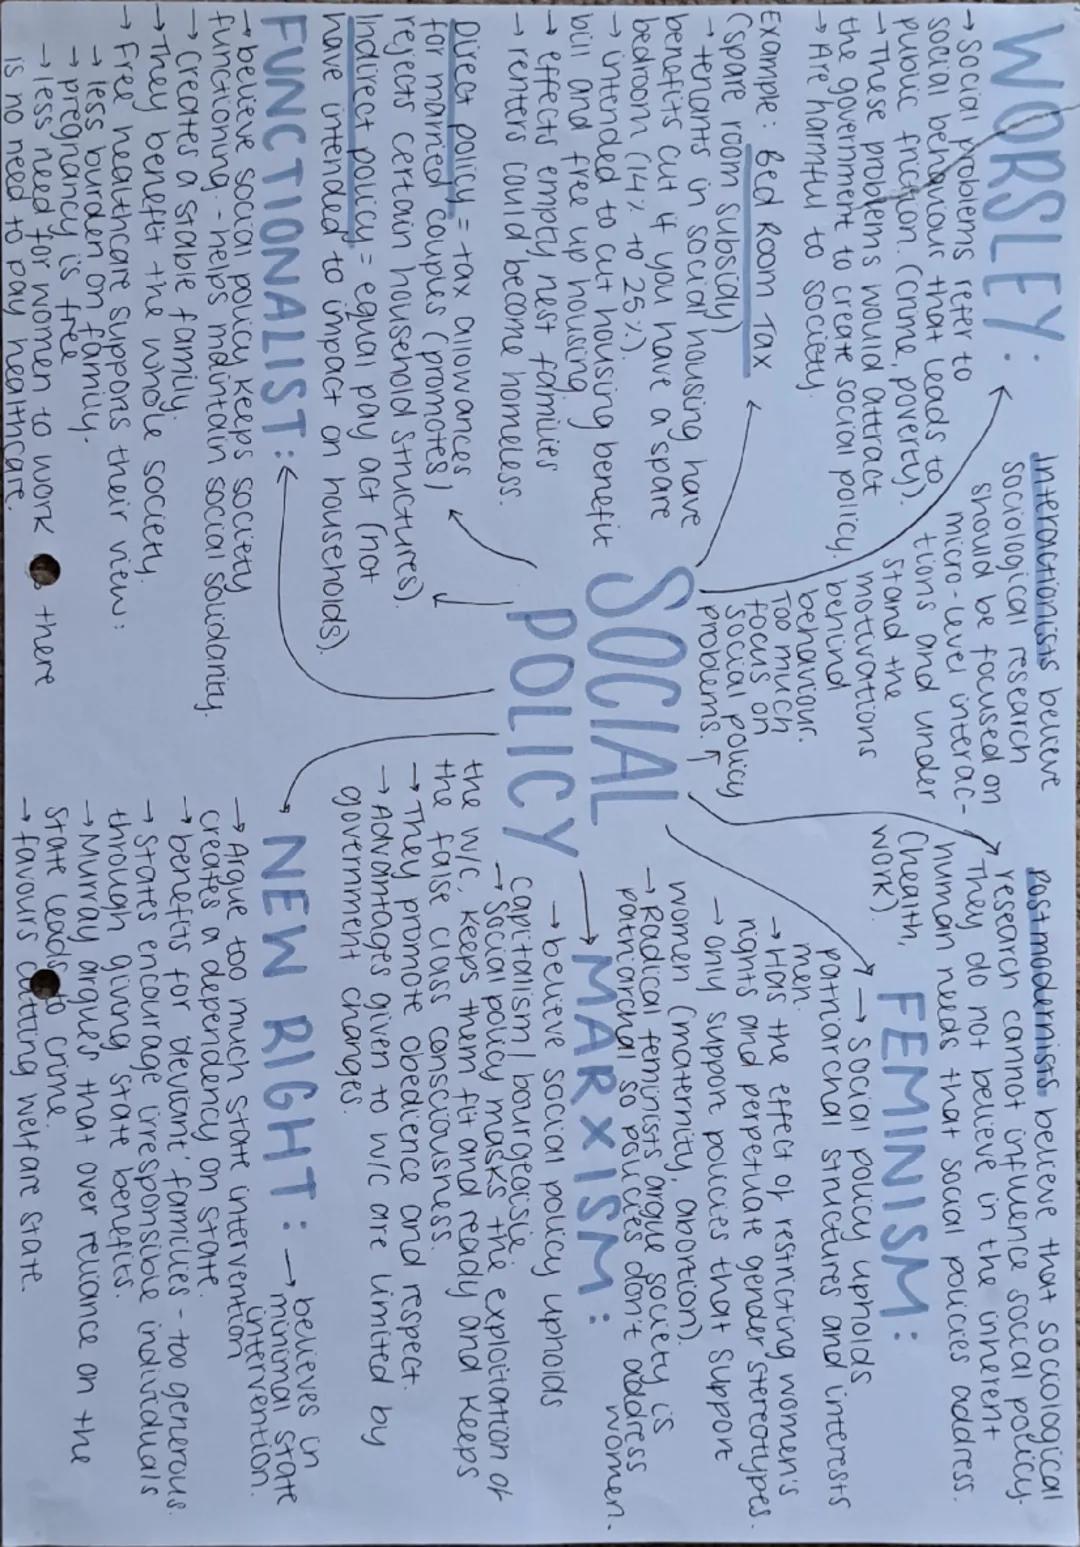 WORSLEY:
→ Social problems refer to
social behaviour that leads to
public friction. (crime, poverty).
→ These problems would attract
the government to create social policy.
→ Are harmful to society.
Example: Bed Room Tax
(spare room subsidy)
→ tenants in social housing have
benefits cut if you have a spare
bedroom (14% to 25%).
→ intended to cut housing benefit
bill and free up housing.
→ effects empty nest families
→ renters could become homeless.
Direct policy = tax allowances
for married couples (promotes/
rejects certain household structures).
Indirect policy = equal pay act (not
have intended to impact on households).
FUNCTIONALIST:
→ believe social policy keeps society
functioning. - helps maintain social solidarity.
→ Creates a stable family.
→ They benefit the whole society.
→ Free healthcare supports their view:
→ less burden on family.
→ pregnancy is free
→ less need for women to work there
is no need to pay healthcare.
Interactionists believe
sociological research
should be focused on
micro-level interac-
tions and under
stand the
motivations
behind
behaviour.
Too much
focus on
social policy
problems. ↑
SOCIAL
POLICY
Postmodernists believe that sociological
research cannot influence social policy.
They do not believe in the inherent
human needs that social policies address.
(health,
work).
FEMINISM:
→ social policy upholds
patriarchal structures and interests
men.
→ Has the effect of restricting women's
rights and perpetuate gender stereotypes.
→ only support policies that support
women (maternity, abortion).
→ Radical feminists argue society is
patriarchal so policies don't address
women.
→ MARXISM:
→ believe social policy upholds
capitalism/bourgeoisie.
→ Social policy masks the exploitation of
the w/c, keeps them fit and ready and keeps
the false class consciousness.
→ They promote obedience and respect.
→ Advantages given to w/c are limited by
government changes.
NEW RIGHT: → believes in
minimal state
intervention.
→ Argue too much state intervention
creates a dependency on state.
→ benefits for 'deviant' families - too generous.
→ States encourage irresponsible individuals
through giving state benefits.
→ Murray argues that over reliance on the
state leads to crime.
→ favours cutting welfare state.